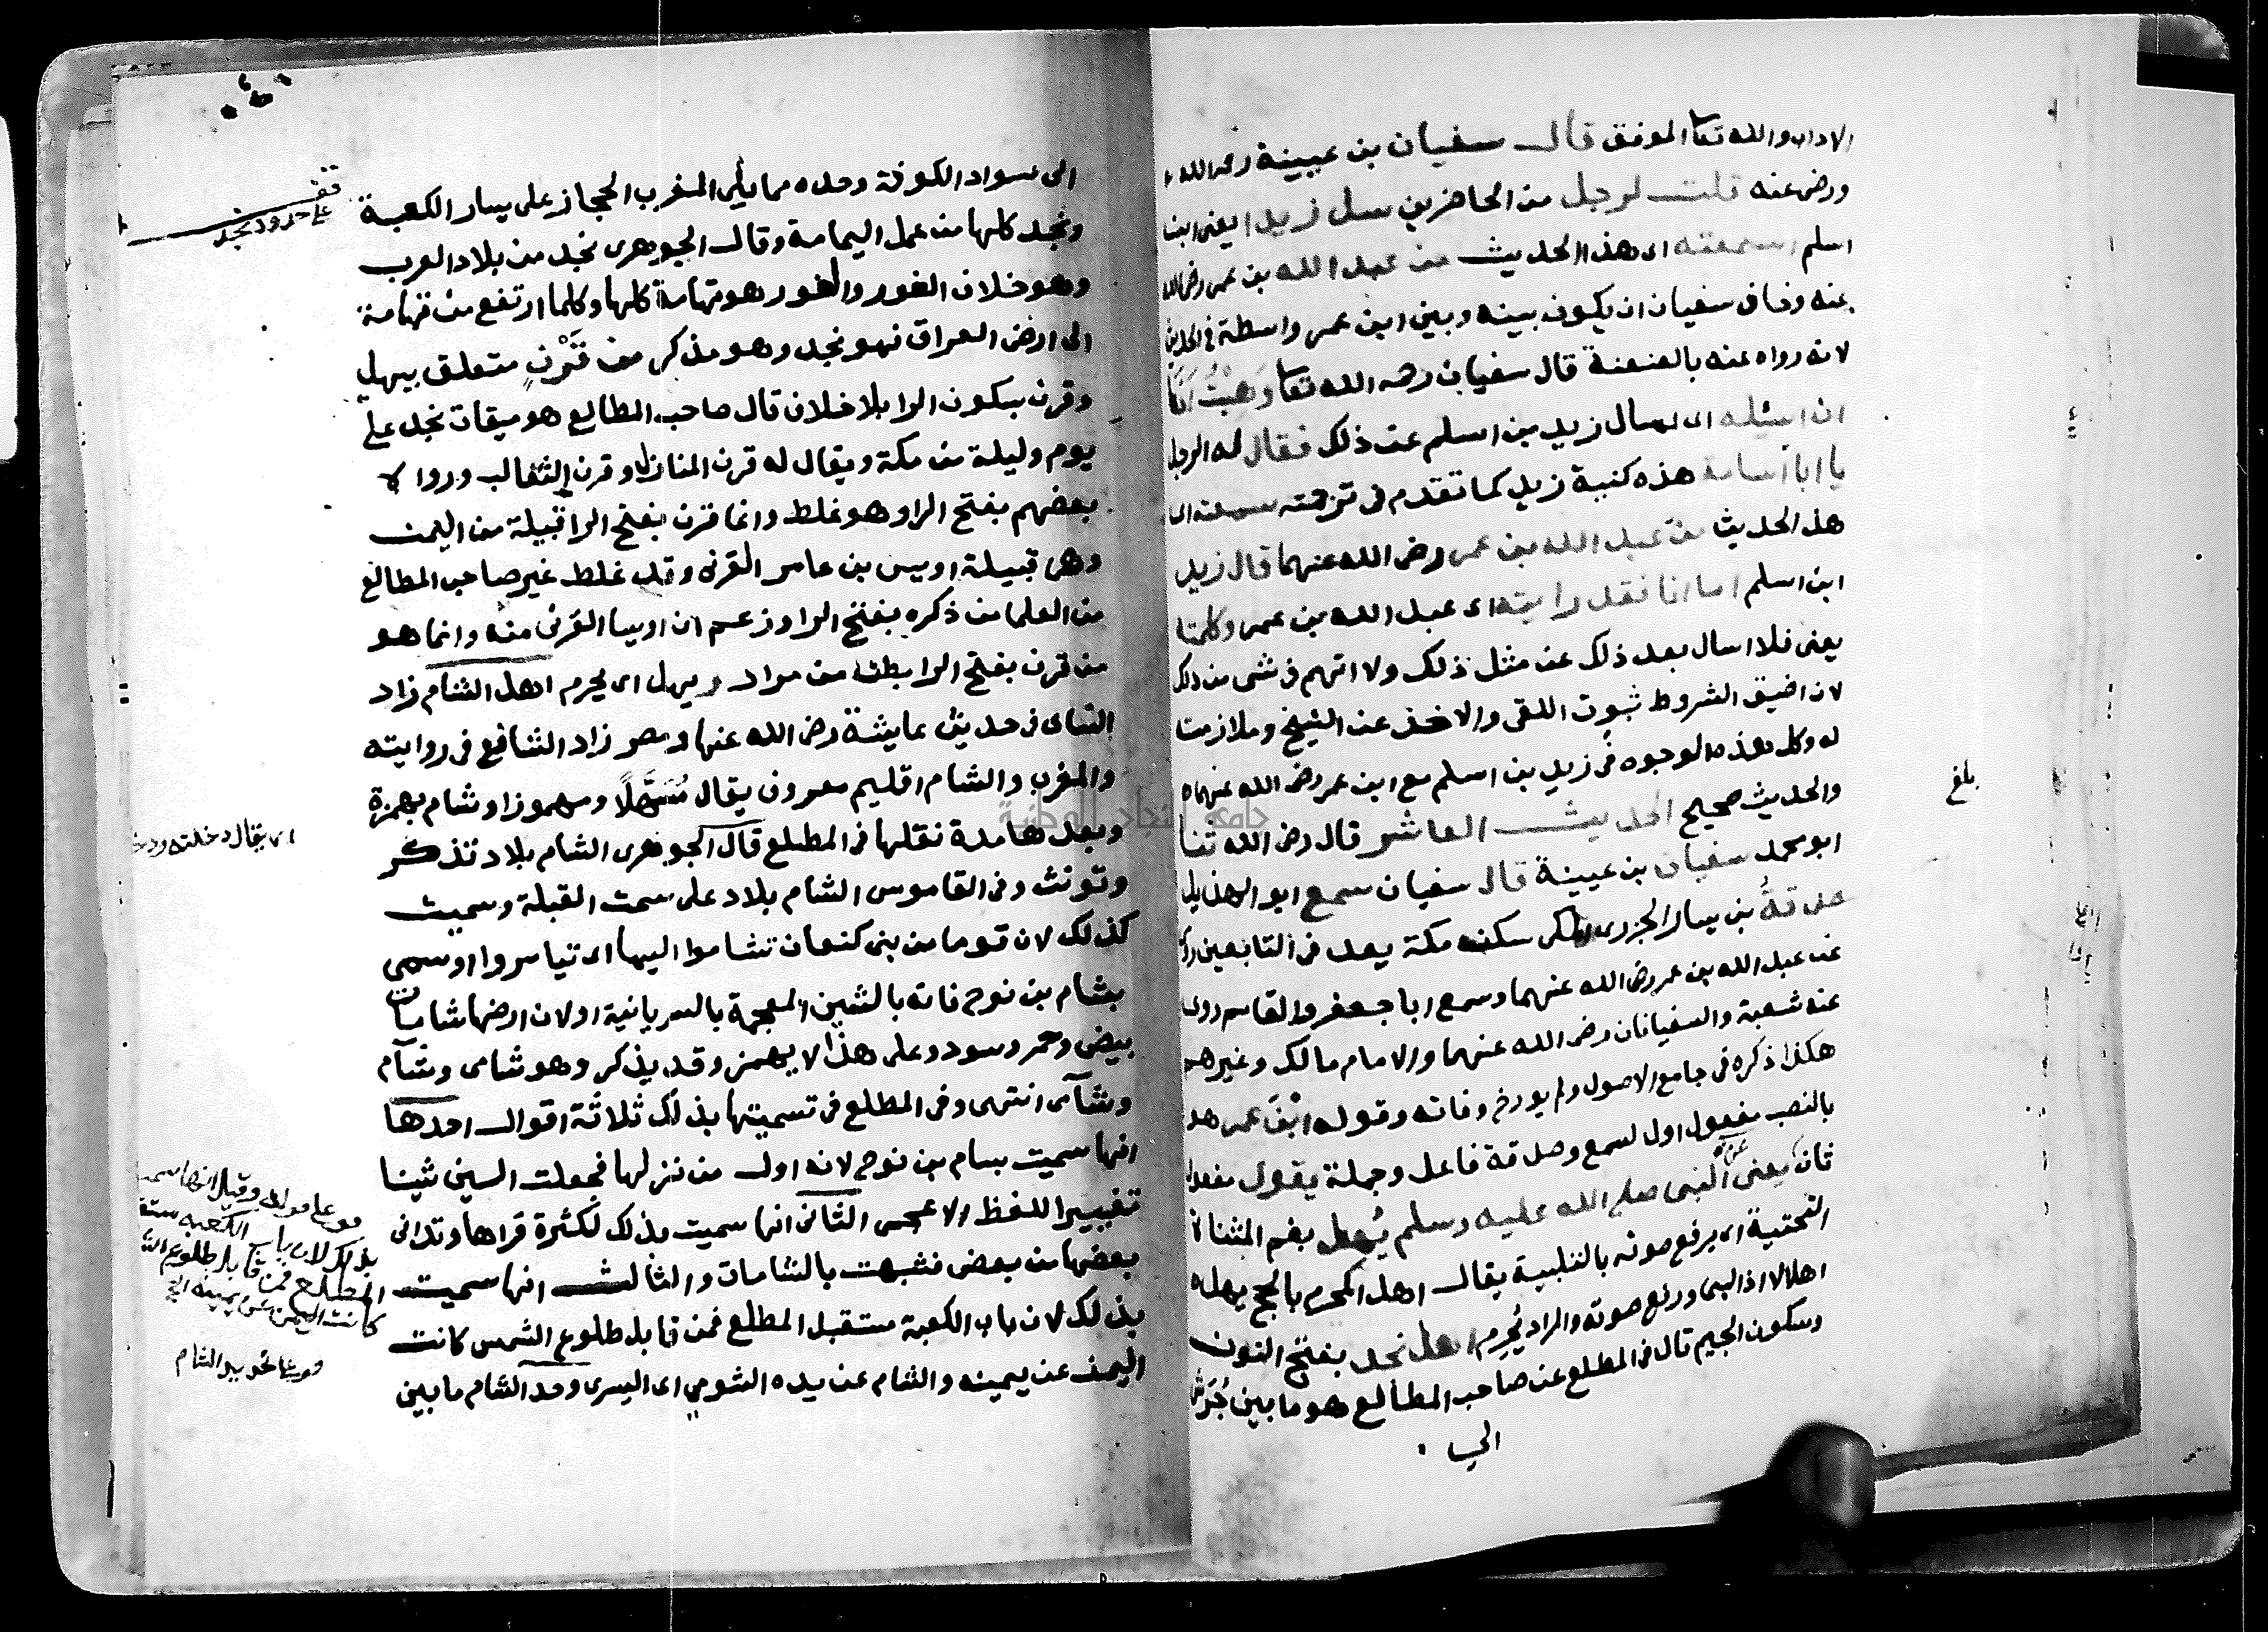 الاداب والله تعا الموفق قال سفيان بن عيينة رحمه الله
ورضى عنه قلت لرجل من الحاضرين سل زيدا يعنى ابن
اسلم اسمعته اى هذا الحديث من عبد الله بن عمر رضى الله
عنه وخاف سفيان ان يكون بينه وبين ابن عمر واسطة فى الحديث
لانه رواه عنه بالعنعنة قال سفيان رحمه الله تعا وهبت انا
ان اسئله اى اسال زيد بن اسلم عن ذلك فقال له الرجل
يا ابا أسامة هذه كنية زيد كما تقدم فى ترجمته سمعت اى
هذا الحديث من عبد الله بن عمر رضى الله عنهما قال زيد
ابن اسلم اما انا فقد رايته اى عبد الله بن عمر وكلمته
يعنى فلا اسال بعد ذلك عن مثل ذلك ولا اتهم فى شى من ذلك
لان اضيق الشروط ثبوت اللقى والاخذ عن الشيخ وملازمت
له وكل هذه الوجوه فى زيد بن اسلم مع ابن عمر رضى الله عنهما
والحديث صحيح الحديث العاشر قال رضى الله تعا
بلغ
ابو محمد سفيان بن عيينة قال سفيان سمع ابو الهذيل
صدقة بن يسار الجزرى المكى سكن مكة يعد فى التابعين روى
عن عبد الله بن عمر رضى الله عنهما وسمع ابا جعفر والقاسم روى
عنه شعبة والسفيانان رضى الله عنهما والامام مالك وغيرهم
هكذا ذكره فى جامع الاصول ولم يورخ وفاته وقوله ابن عمر هو
بالنصب مفعول اول لسمع وصدقة فاعل وجملة يقول مفعول
ثان يعنى عن النبى صلى الله عليه وسلم يهل بضم المثناة
التحتية اى يرفع صوته بالتلبية يقال اهل المحرم بالحج يهل
اهلالا اذا لبى ورفع صوته والمراد يُحرم اهل نجد بفتح النون
وسكون الجيم قال فى المطلع عن صاحب المطالع هو ما بين جُرَش
الى
الى سواد الكوفة وحده مما يلى المغرب الحجاز على يسار الكعبة
قف
على حدود نجد
ونجد كلها من عمل اليمامة وقال الجوهرى نجد من بلاد العرب
وهو خلاف الغور والغور هو تهامة كلها وكلما ارتفع من تهامة
الى ارض العراق فهو نجد وهو مذكر من قَرْنٍ متعلق بيهل
وقرن بسكون الرا بلا خلاف قال صاحب المطالع هو ميقات نجد على
يوم وليلة من مكة ويقال له قرن المنازل وقرن الثعالب ورواه
بعضهم بفتح الرا وهو غلط وانما قرن بفتح الرا قبيلة من اليمن
وهى قبيلة اويس بن عامر القرنى وقد غلط غير صاحب المطالع
من العلما من ذكره بفتح الرا وزعم ان اويسا القرنى منه وانما هو
من قرن بفتح الرا بطن من مراد ويهل اى يحرم اهل الشام زاد
النساى فى حديث عايشة رضى الله عنها ومصر زاد الشافع فى روايته
والمغرب والشام اقليم معروف يقال مُسَهَّلًا ومهموزا وشام بهمزة
وبعدها مدة نقلها فى المطلع قال الجوهرى الشام بلاد تذكر
وتونث وفى القاموس الشام بلاد على سمت القبلة وسميت
كذلك لان قوما من بنى كنعان تشاموا اليها اى تياسروا او سمى
بشام بن نوح فانه بالشين المعجمة بالسريانية او لان ارضها شامات
بيض وحمر وسود وعلى هذا لا يهمز وقد يذكر وهو شامى وشآم
وشآمى انتهى وفى المطلع فى تسميتها بذلك ثلاثة اقوال احدها
انها سميت بسام بن نوح لانه اول من نزلها فجعلت السين شينا
تغييرا للفظ الاعجمى الثانى انها سميت بذلك لكثرة قراها وتدانى
بعضها من بعض فشبهت بالشامات والثالث انها سميت
بذلك لان باب الكعبة مستقبل المطلع فمن قابل طلوع الشمس كانت
اليمن عن يمينه والشام عن يده الشومى اى اليسرى وحد الشام ما بين
وقيل انها سميت
بذلك لان باب الكعبه
المطلع فمن قابل طلوع
كانت اليمن عن يمينه